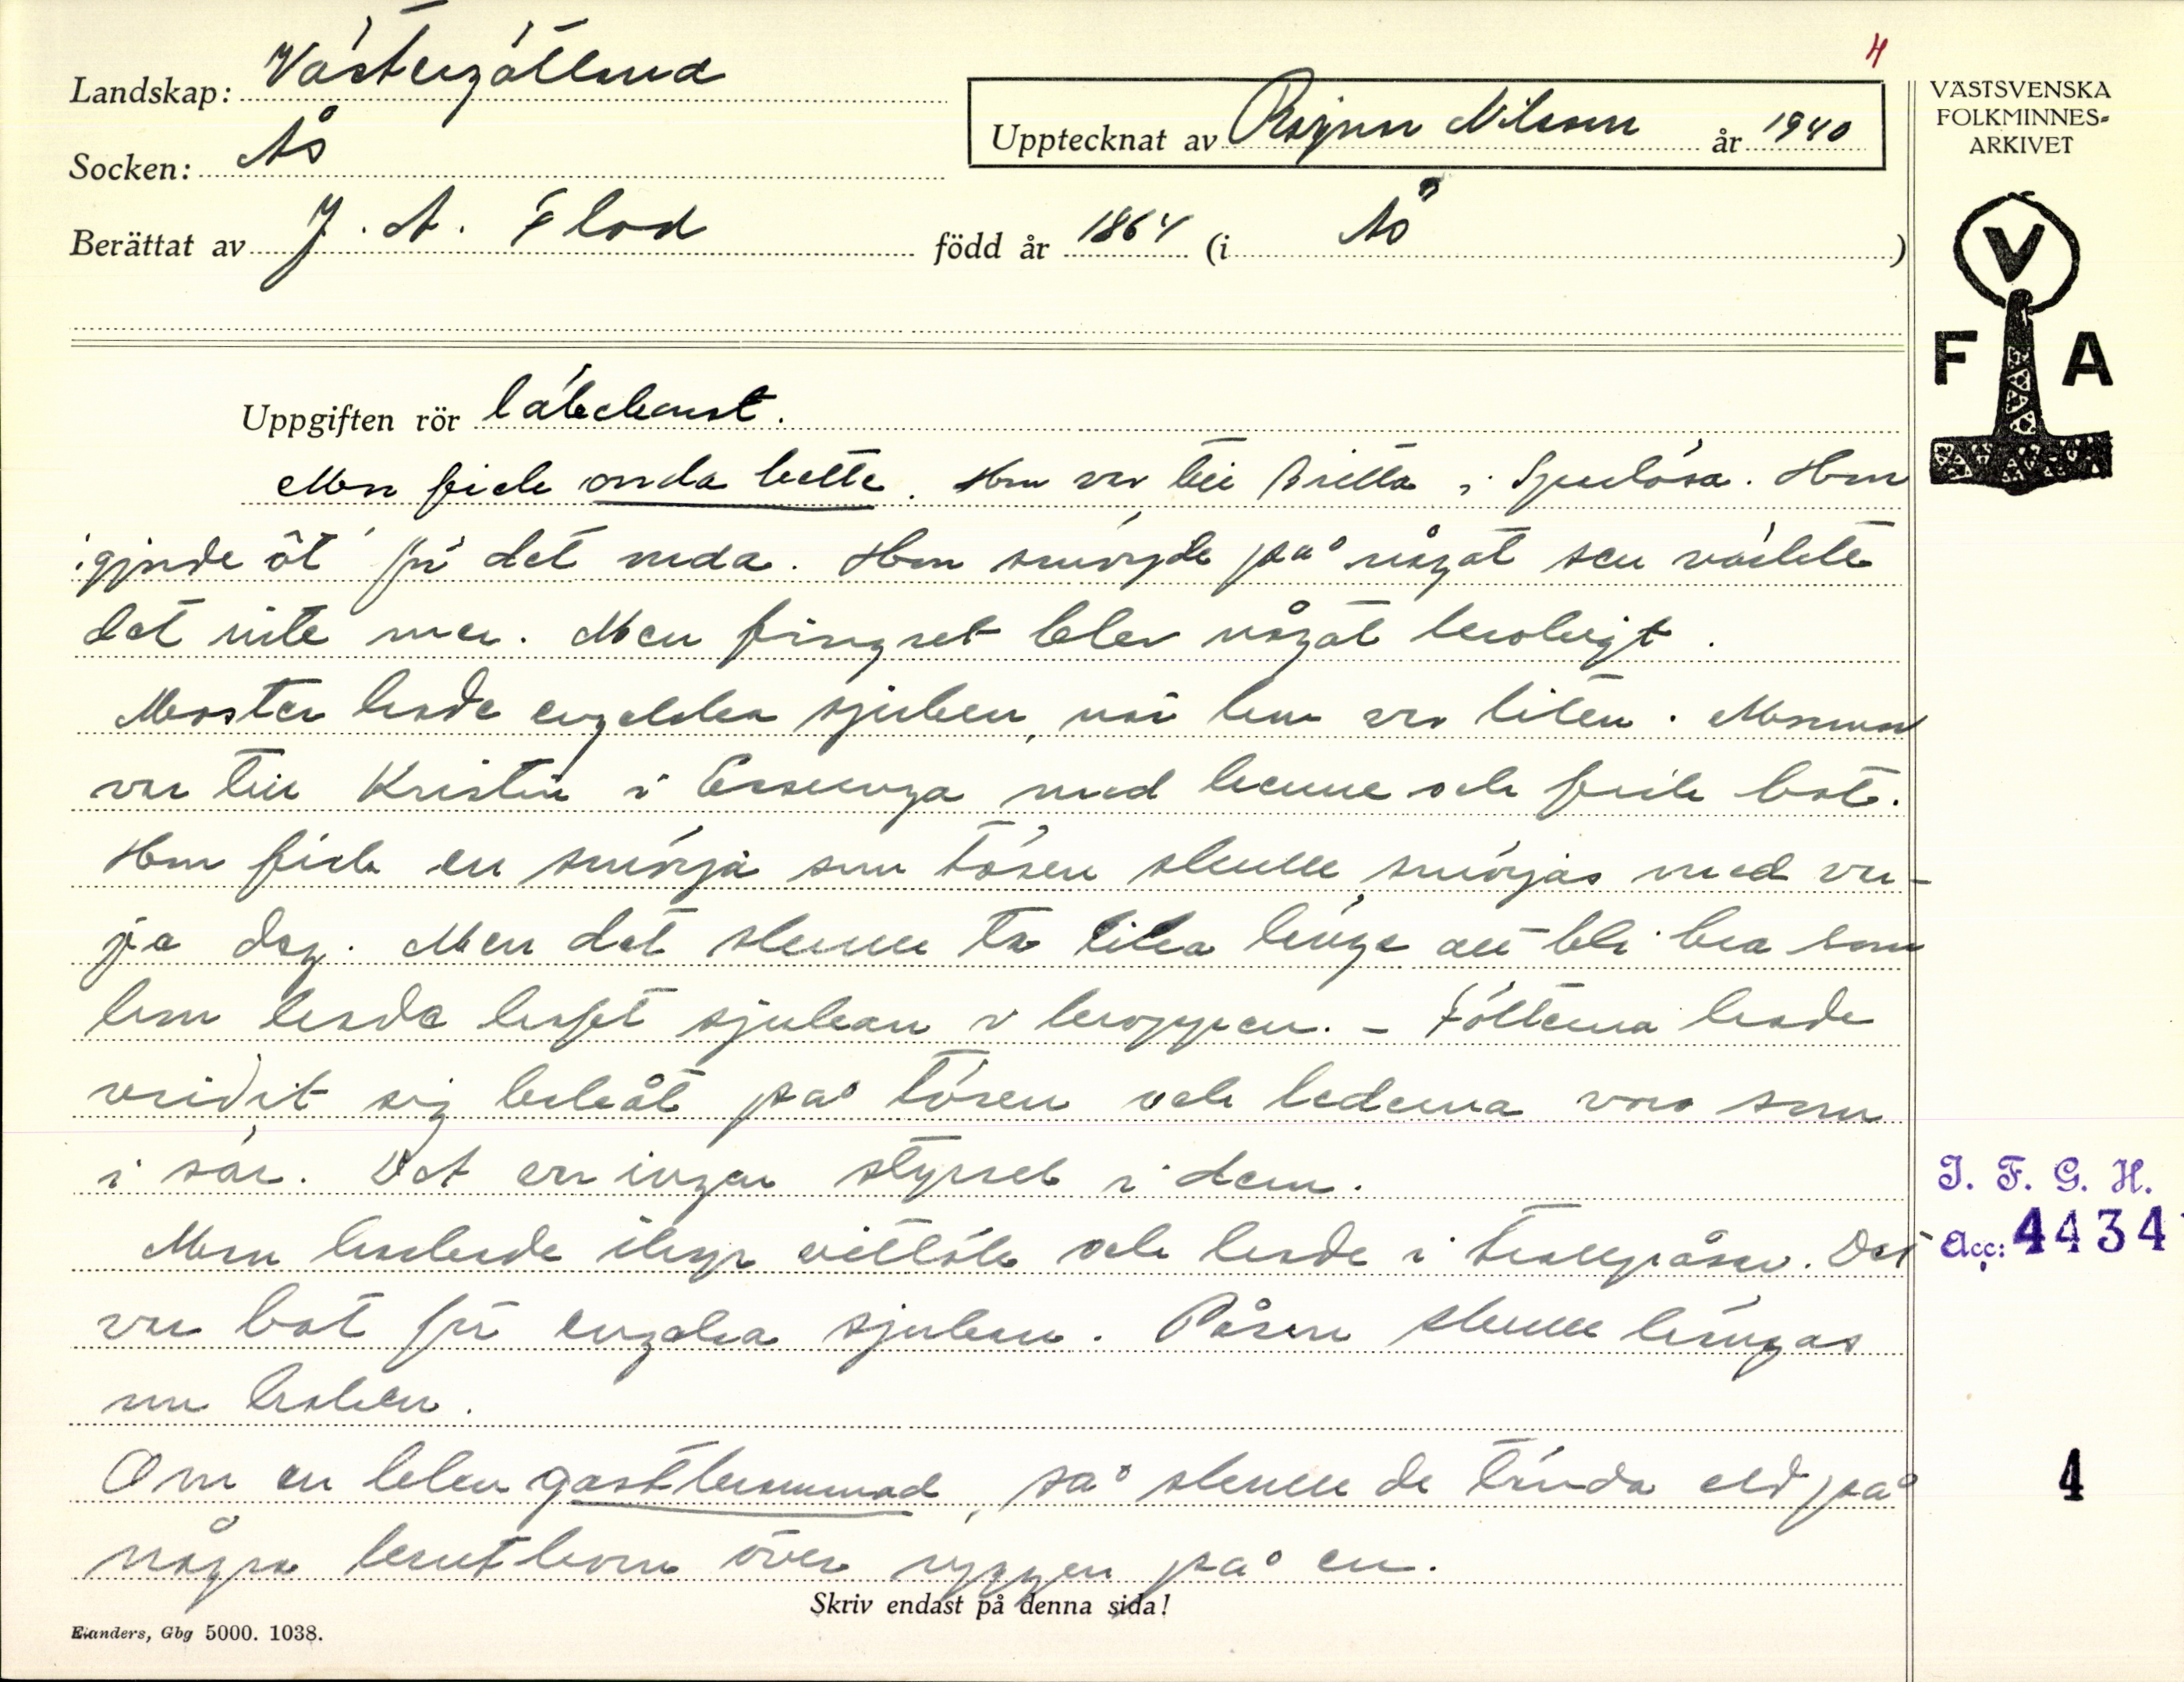 4
Landskap: Västergötland
Socken: Ås
Upptecknat av Ragnar Nilsson år 1940
Berättat av J. A. Flod född år 1864 (i Ås)
VÄSTSVENSKA
FOLKMINNES-
ARKIVET
V
F A
Uppgiften rör läkekonst.
Mor fick onda bette. Hon var till Britta i Hon
gjorde åt för det onda. Hon smörjde på något sen värkte
det inte mer. Men fingret blev något krokigt.
Moster hade engelska sjukan, när hon var liten. Mormor
var till Kristin i med henne och fick bot.
Hon fick en smörja som tösen skulle smörjas med var-
ja dag. Men det skulle ta lika länge att bli bra som
hon hade haft sjukan i kroppen. - Fötterna hade
vridit sig bakåt på tösen och lederna voro som
isär. Det var ingen styrsel i dem.
Man hackade ihop vitlök och hade i tvillpåsar. Det
var bot för engelska sjukan. Påsen skulle hängas
om halsen.
Om en blev gastkrammad, så skulle de tända eld på
några krutkorn över ryggen på en.
Skriv endast på denna sida!
Elanders, Gbg 5000. 1038.
I. F. G. H.
Acc: 4434
4